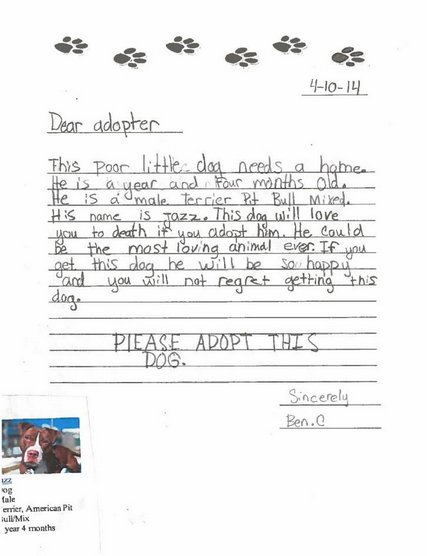 4-10-14
Dear adopter
This poor little dog needs a home.
He is a year and four months old.
He is a male Terrier Pit Bull Mixed.
His name is Jazz. This dog will love
you to death if you adopt him. He could
be the most loving animal ever. If you
get this dog he will be so happy
and you will not regret getting this
dog.
PLEASE ADOPT THIS
DOG.
Sincerely
Ben.C
azz
og
ale
errier, American Pit
ull/Mix
year 4 months